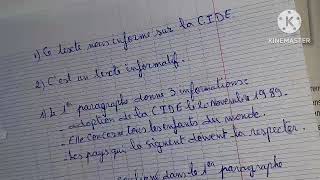 1) Ce texte nous informe sur la CIDE.
2) C'est un texte informatif.
1) Le 1er paragraphe donne 3 informations:
- adoption de la CIDE le 20 novembre 1989.
- Elle concerne tous les enfants du monde.
- Les pays qui la signent doivent la respecter.
dans le 1er paragraphe
KINEMASTER